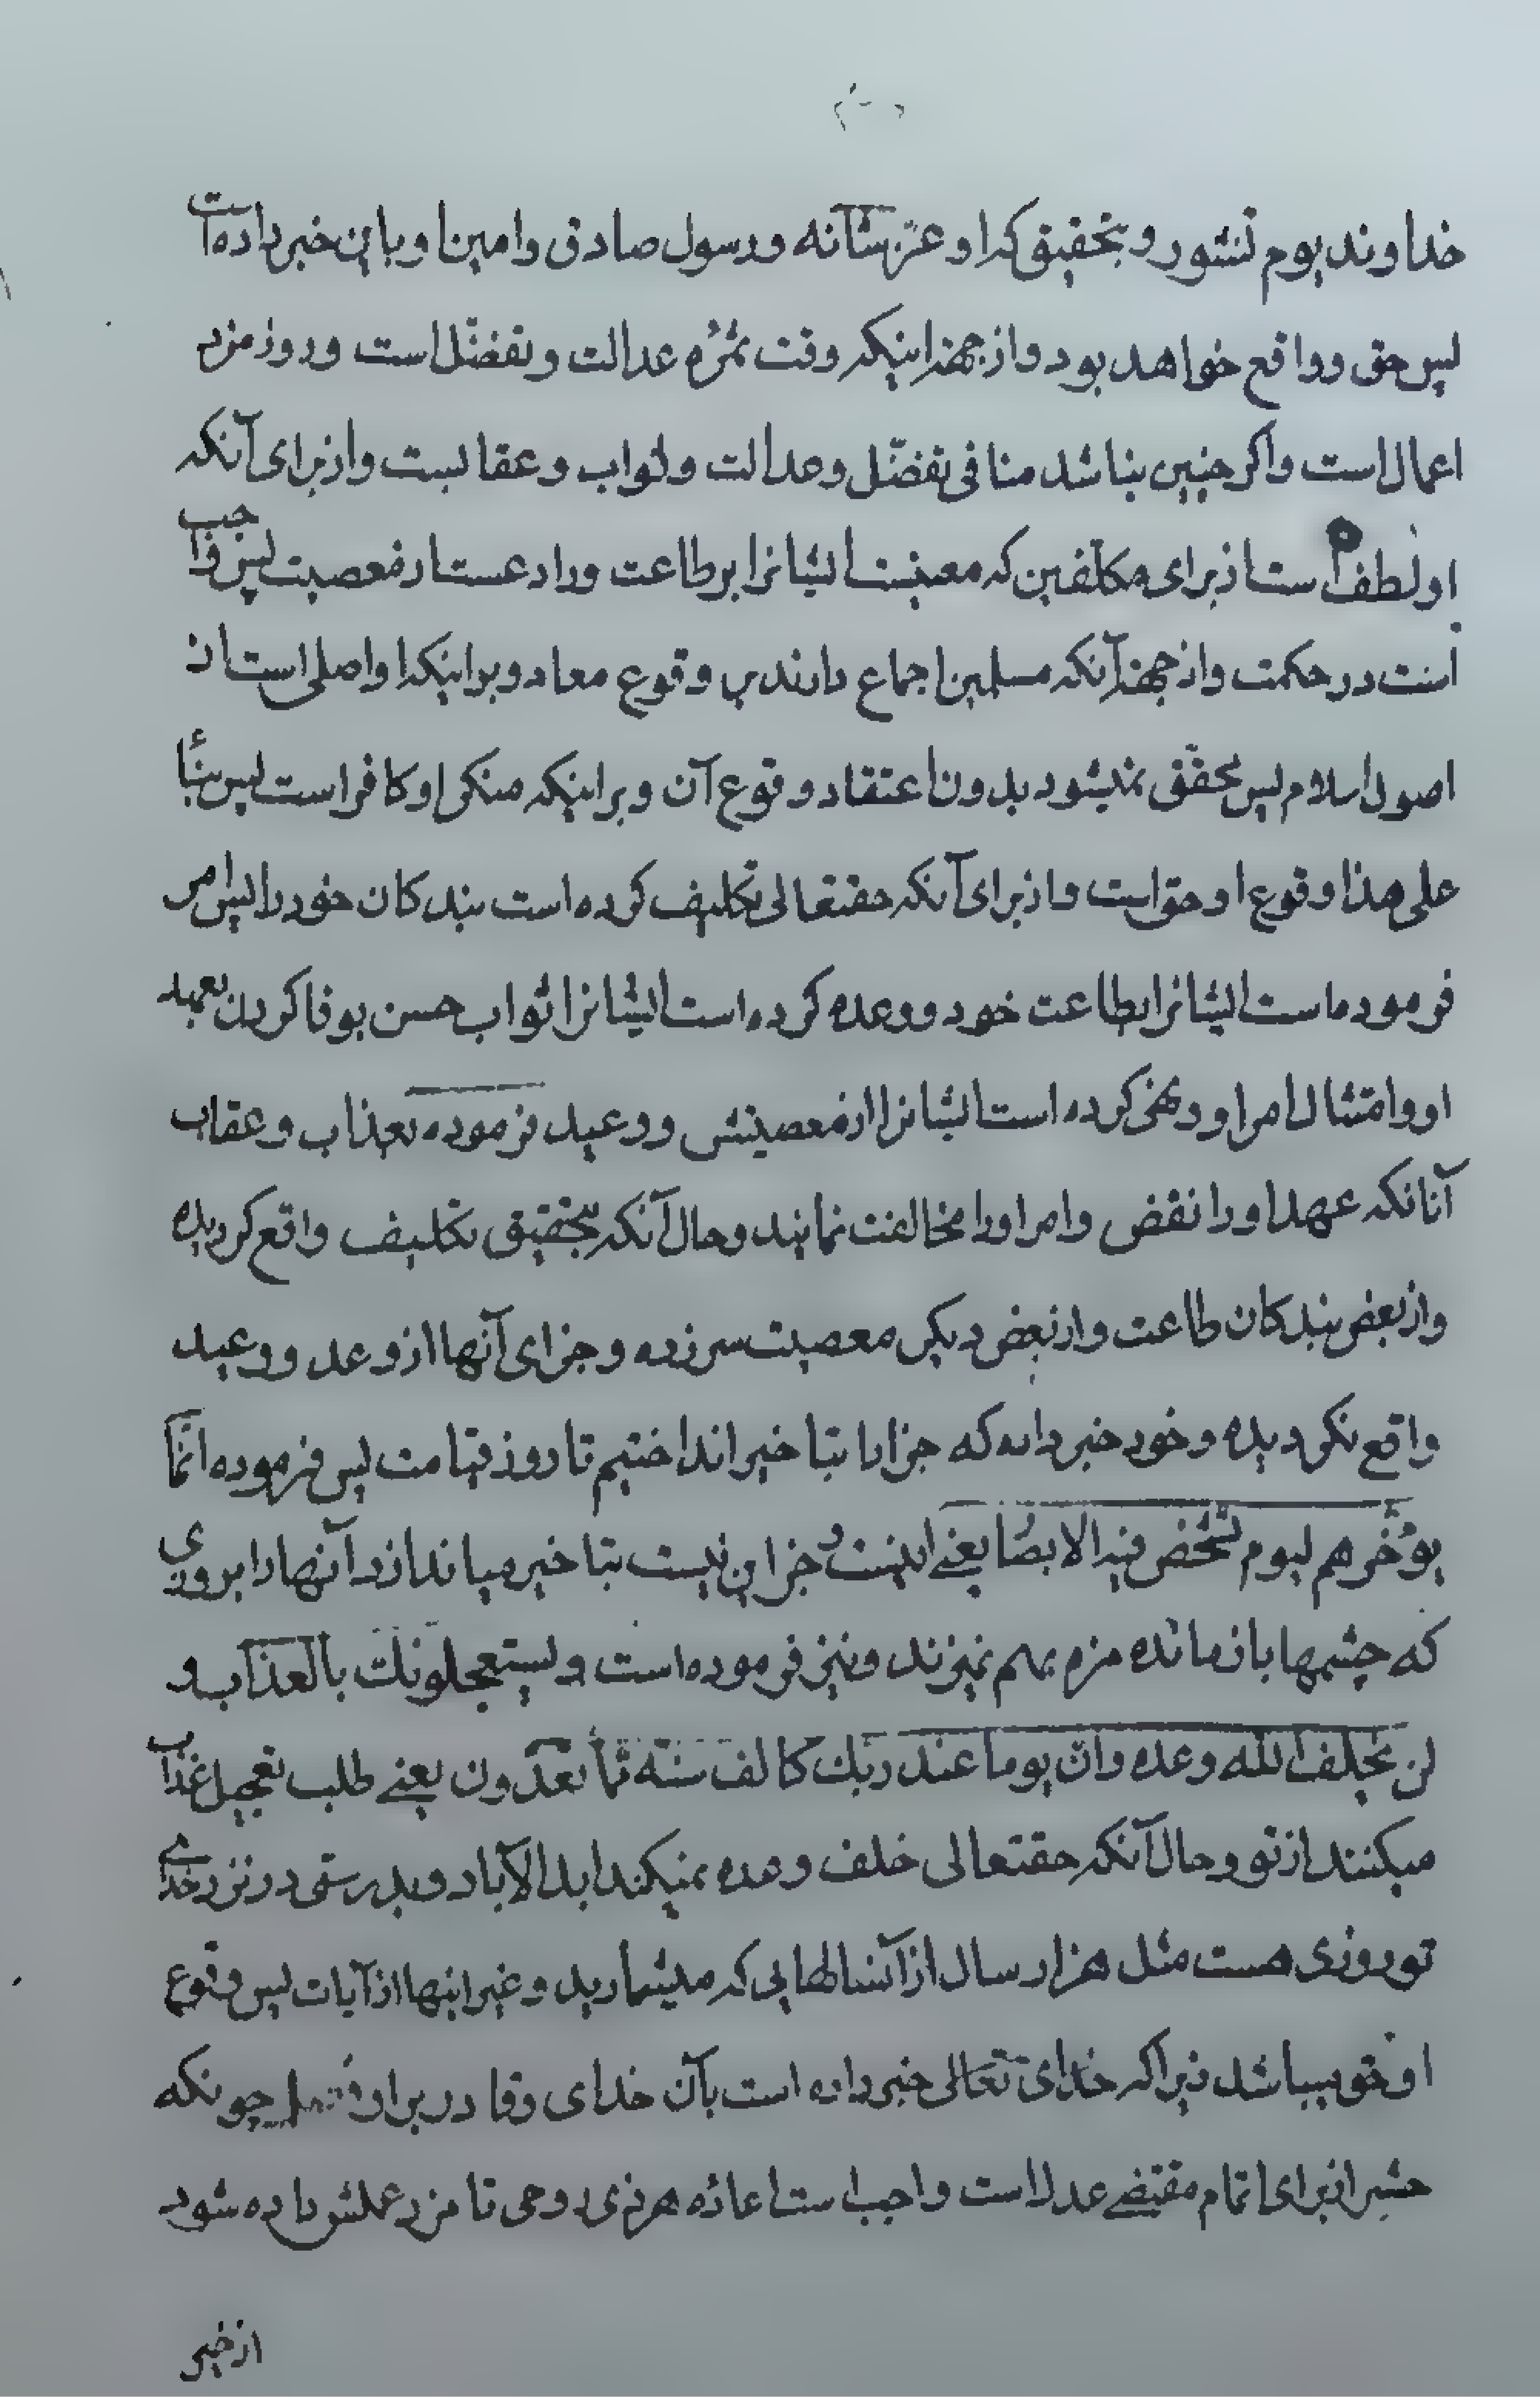 خداوند یوم نشور و بتحقیق که او عزّ شأنه و رسول صادق و امین او باین خبر داده است
پس حق و واقع خواهد بود و از جهة اینکه وقت ثمرُه عدالت و تفضّل است و روز مزد
اعمال است و اکر چنین بناشد منافی تفضّل و عدالت و ثواب و عقابست و از برای آنکه
او لطف است از برای مکلّفین که معینست ایشانرا بر طاعت و رادعست از معصیت پس واجب
است در حکمت و از جهة آنکه مسلمین اجماع دارند بر وقوع معاد و براینکه او اصلی است از
اصول اسلام پس محقّق نمیشود بدون اعتقاد وقوع آن و براینکه منکر او کافر است پس بناءً
علی هذا وقوع او حق است و از برای آنکه حقتعالی تکلیف کرده است بندکان خود را پس امر
فرموده است ایشانرا بطاعت خود و وعده کرده است ایشانرا ثواب حسن بوفا کردن بعهد
او و امتثال امر او و نهی کرده است ایشانرا از معصیتش و وعید فرموده بعذاب و عقاب
آنانکه عهد او را نقض و امر او را مخالفت نمایند و حال آنکه بتحقیق تکلیف واقع کردیده
و از بعض بندکان طاعت و از بعض دیکر معصیت سر زده و جزای آنها از وعد و وعید
واقع نکردیده و خود خبر داده که جزا را بتاخیر انداختیم تا روز قیامت پس فرموده انّما
یؤخّرهم لیوم تشخص فیه الابصار یعنے اینست و جز این نیست بتاخیر میاندازد آنها را بروزی
که چشمها باز مانده مژه بهم نمیزند و نیز فرموده است و یستعجلونك بالعذاب و
لن یخلف الله وعده و انّ یوما عند ربك کالف سنة ممّا تعدّون یعنے طلب تعجیل عذاب
میکنند از تو و حال آنکه حقتعالی خلف وعده نمیکند ابد الآباد و بدرستی در نزد خدای
تو روزی هست مثل هزار سال از آنسالهایی که میشمارید و غیر اینها از آیات پس وقوع
او حق میباشد زیرا که خدای تعالی خبر داده است بآن خدای وقادر بر او چونکه
حشر از برای اتمام مقتضے عدل است واجب است اعادُه هر ذی روحی تا مزد عملش داده شود
از خیر